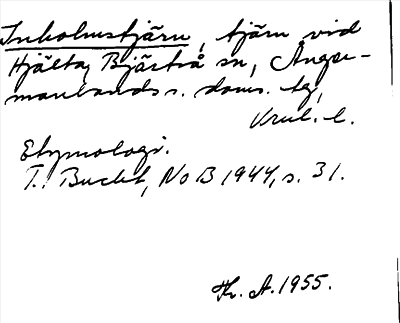 Inholmstjärn, tjärn vid
Hjälta, Bjärtrå sn, Ånger-
manlands s. doms. tg,
Vnrl. l.
Etymologi.
T. Bucht, NoB 1944, s. 31.
Hr. A. 1955.